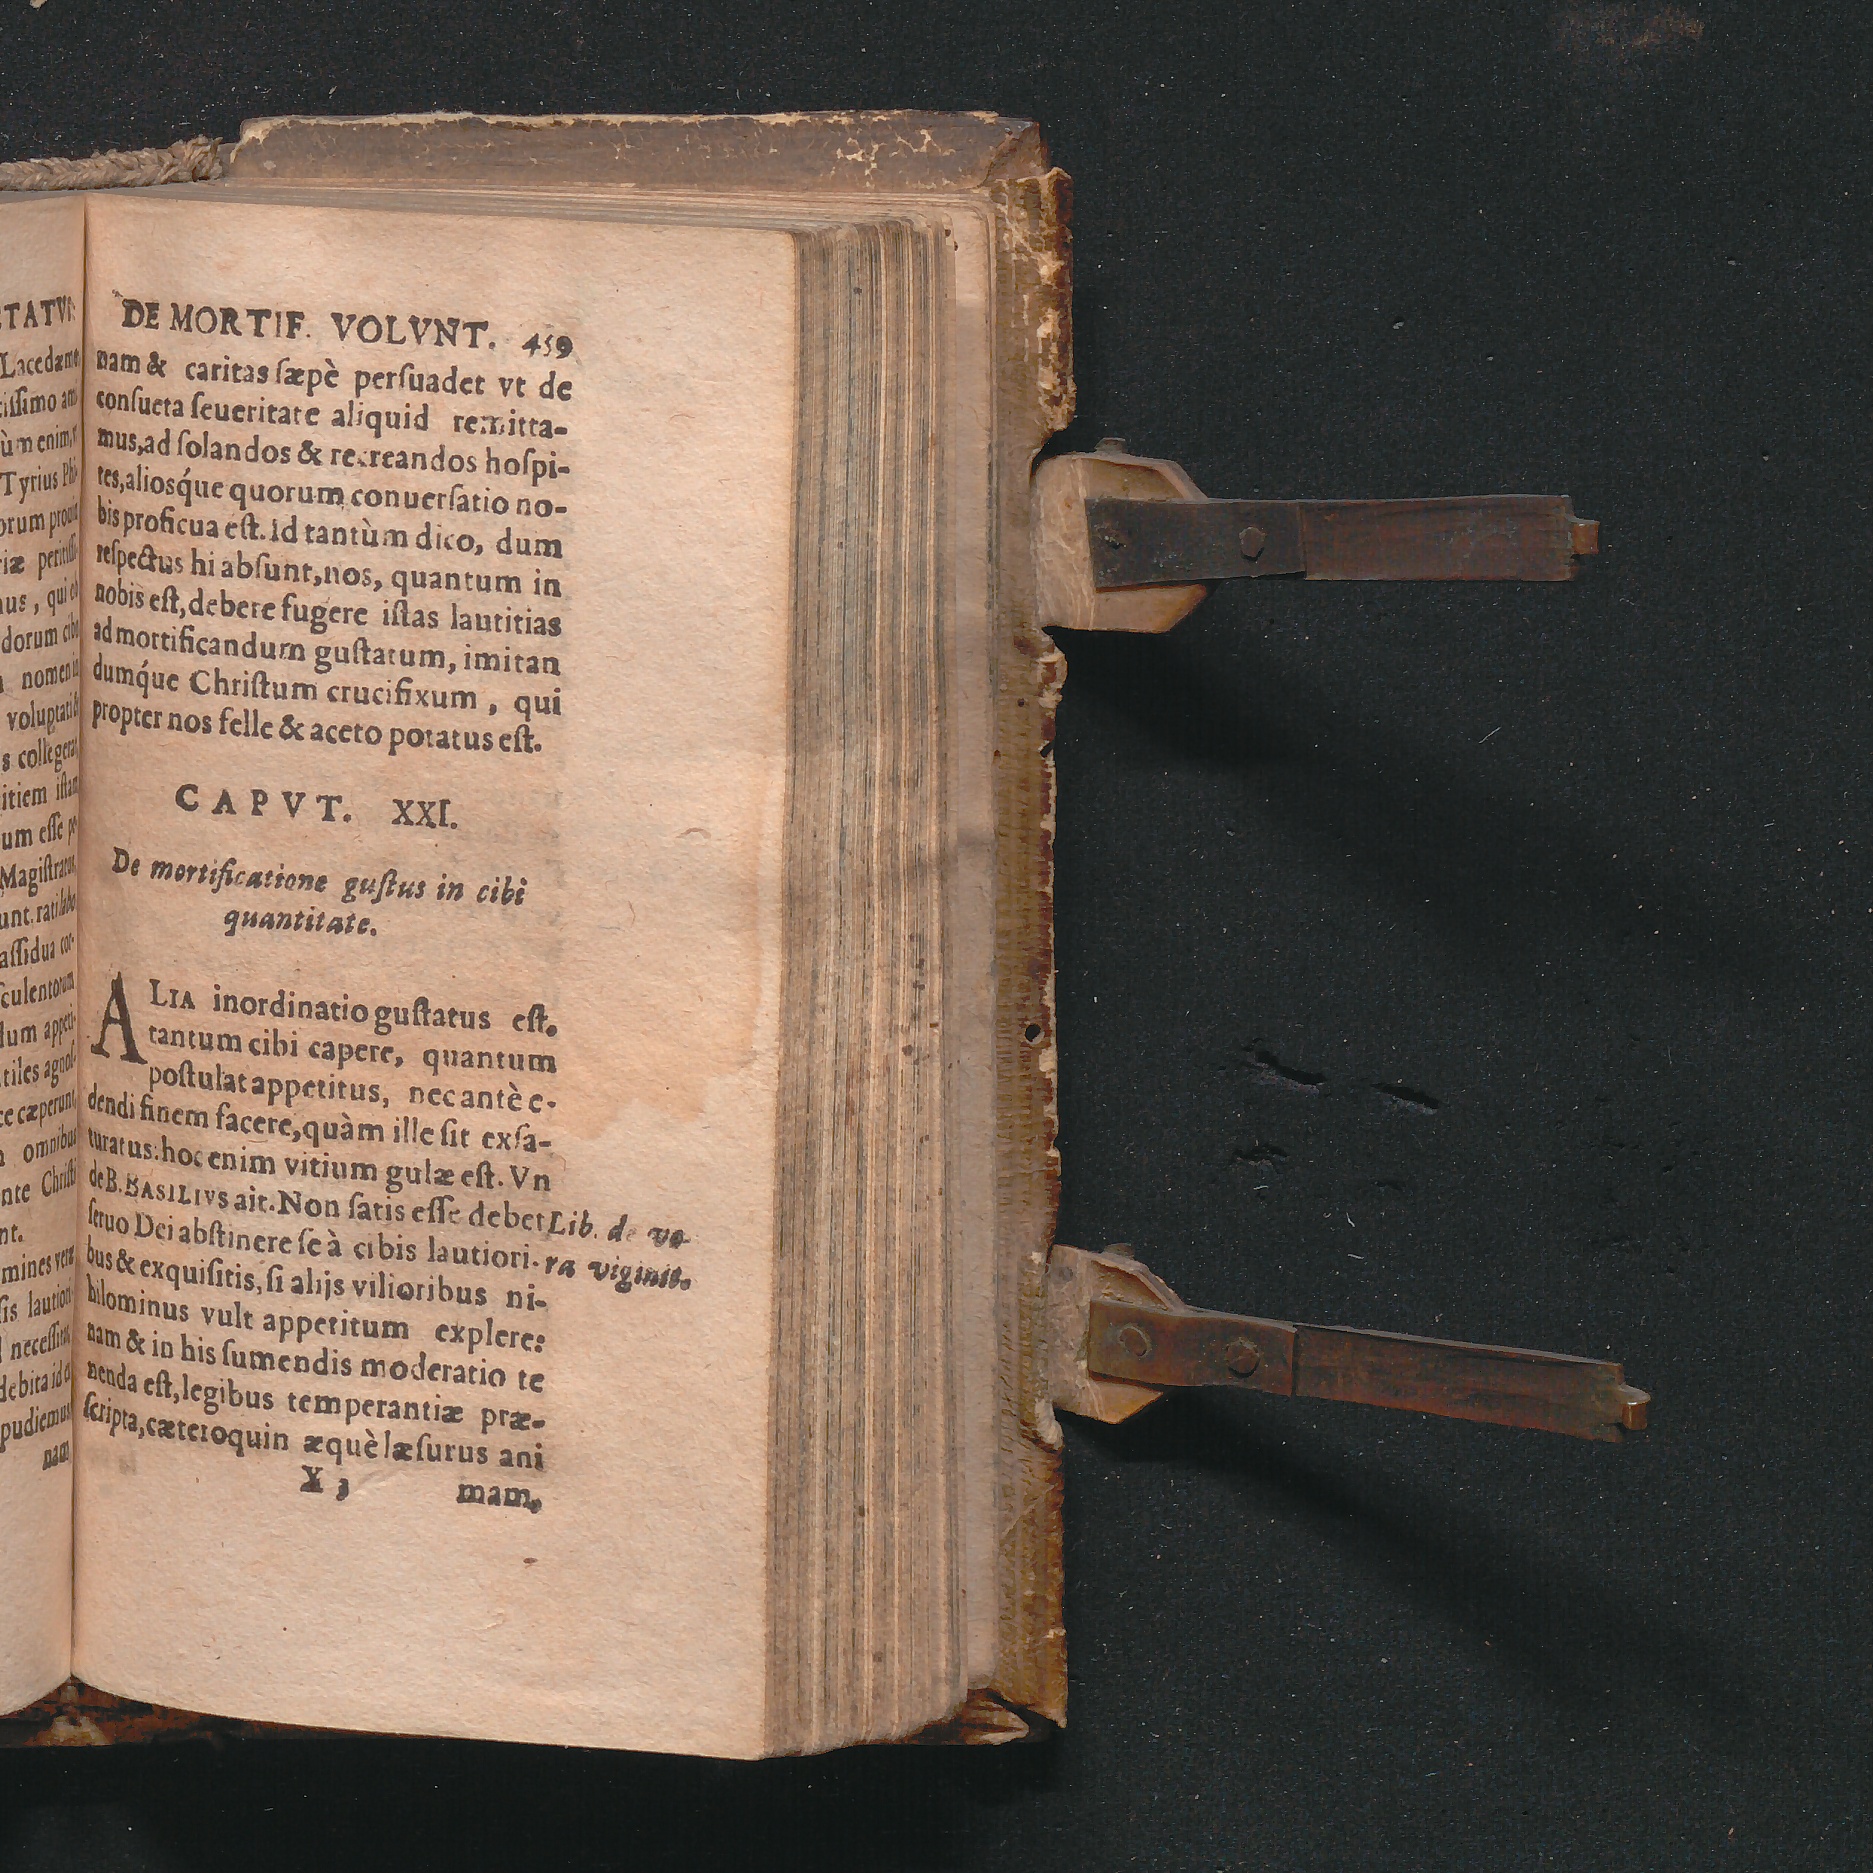 TATVS
Lacedæmo
tiſſimo am
ùm enim,
Tyrius Phi
orum proui
riæ peritiſſi
us, qui ob
dorum cibo
nomen in
voluptati &
s collegerat
itiem iſtam
um eſſe po
Magiſtratus,
unt, rati labo
aſſidua cor-
culentorum
dum appeti-
tiles agnoſ-
ce cæperunt,
omnibus
nte Chriſti
nt.
mines veræ
ſis lautiori
necéſſitas
debita id e
pudiemus
nam
DE MORTIF. VOLVNT. 459
nam & caritas ſæpè perſuadet vt de
conſueta ſeueritate aliquid remitta-
mus,ad ſolandos & recreandos hoſpi-
tes,aliosq́ue quorum conuerſatio no-
bis proficua eſt. Id tantùm dico, dum
reſpectus hi abſunt,nos, quantum in
nobis eſt,debere fugere iſtas lautitias
ad mortificandum guſtatum, imitan
dumq́ue Chriſtum crucifixum , qui
propter nos felle & aceto potatus eſt.
CAPVT. XXI.
De mortificatione guſtus in cibi
quantitate.
ALIA inordinatio guſtatus eſt.
tantum cibi capere, quantum
poſtulat appetitus, nec antè e-
dendi finem facere,quàm ille ſit exſa-
turatus:hoc enim vitium gulæ eſt. Vn
de B. BASILIVS ait. Non ſatis eſſe debet
ſeruo Dei abſtinere ſe à cibis lautiori-
bus & exquiſitis, ſi alijs vilioribus ni-
hilominus vult appetitum explere:
nam & in his ſumendis moderatio te
nenda eſt,legibus temperantiæ præ-
ſcripta,cæteroquin æquè læſurus ani
X 3 mam,
Lib. de ve-
ra viginit.